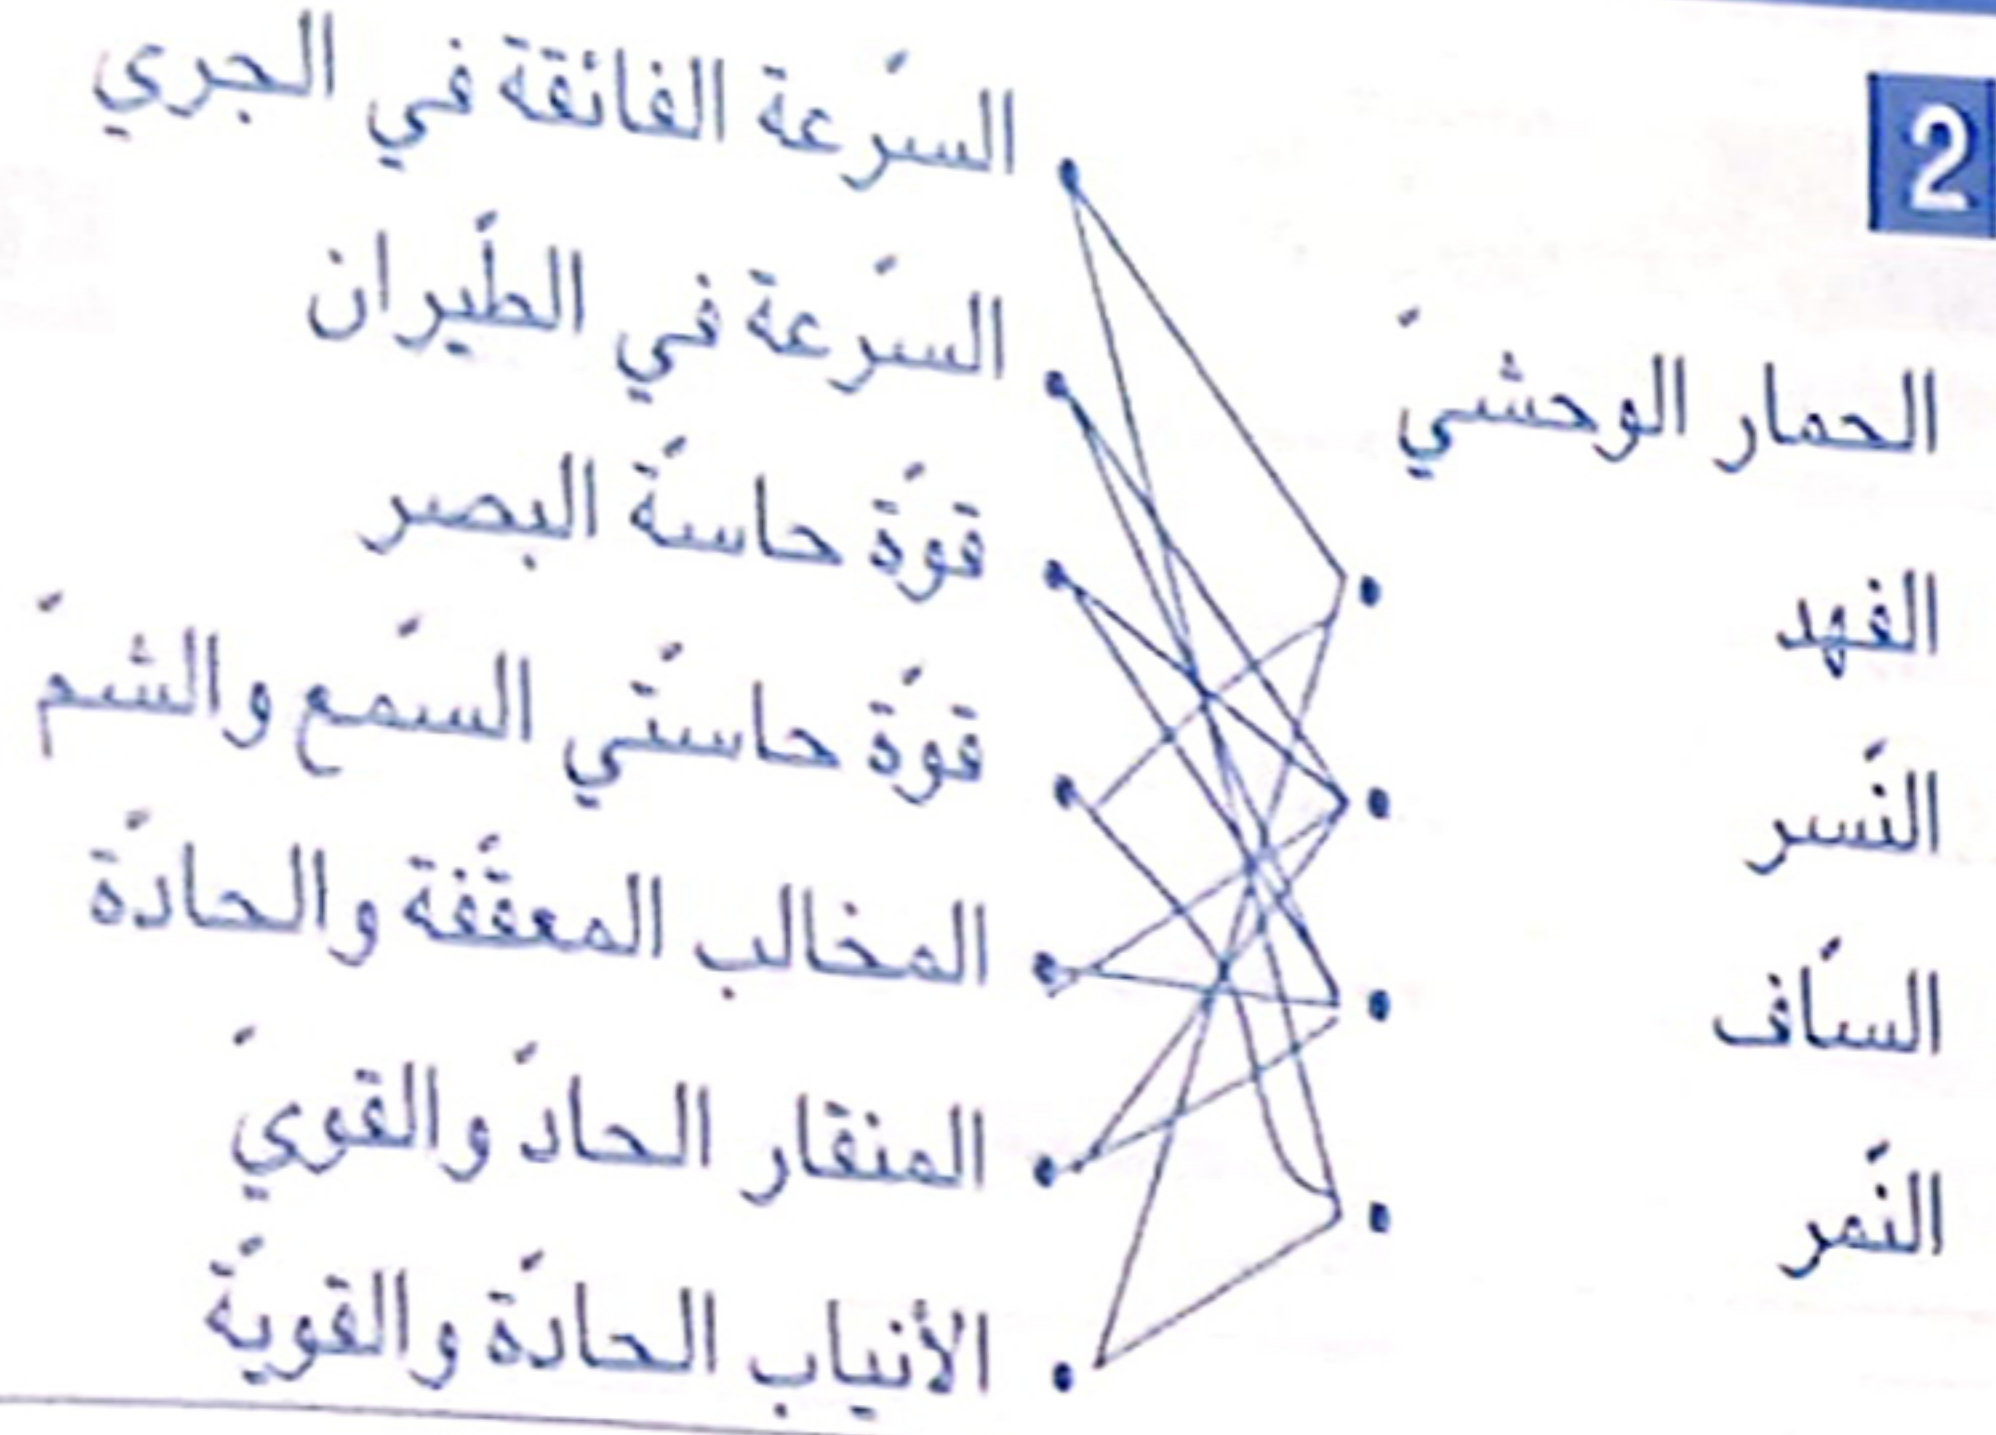 2
الحمار الوحشيّ
الفهد
النّسر
السّاف
النّمر
السّرعة الفائقة في الجري
السّرعة في الطّيران
قوّة حاسّة البصر
قوّة حاسّتي السّمع والشّمّ
المخالب المعقّفة والحادّة
المنقار الحادّ والقويّ
الأنياب الحادّة والقويّة